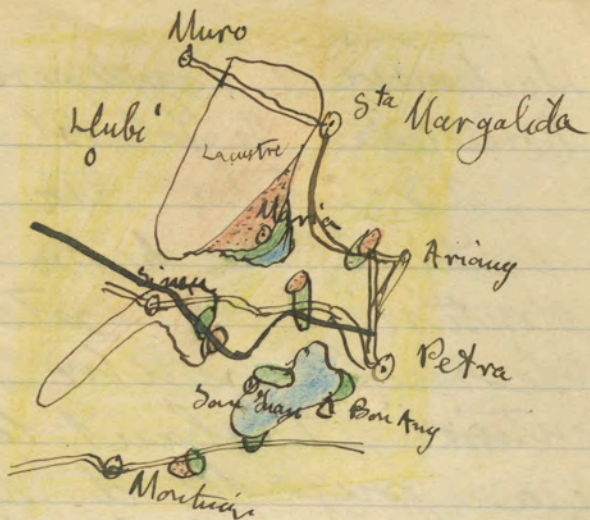 Muro
Sta Margalida
Llubí
Lacustre
María
Ariany
Sineu
Petra
San Juan
Bon Any
Montuiri